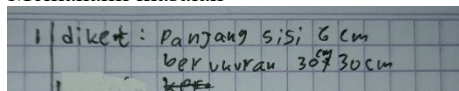 1 diket : Panjang sisi 6 cm
berukuran 30 cm x 30 cm